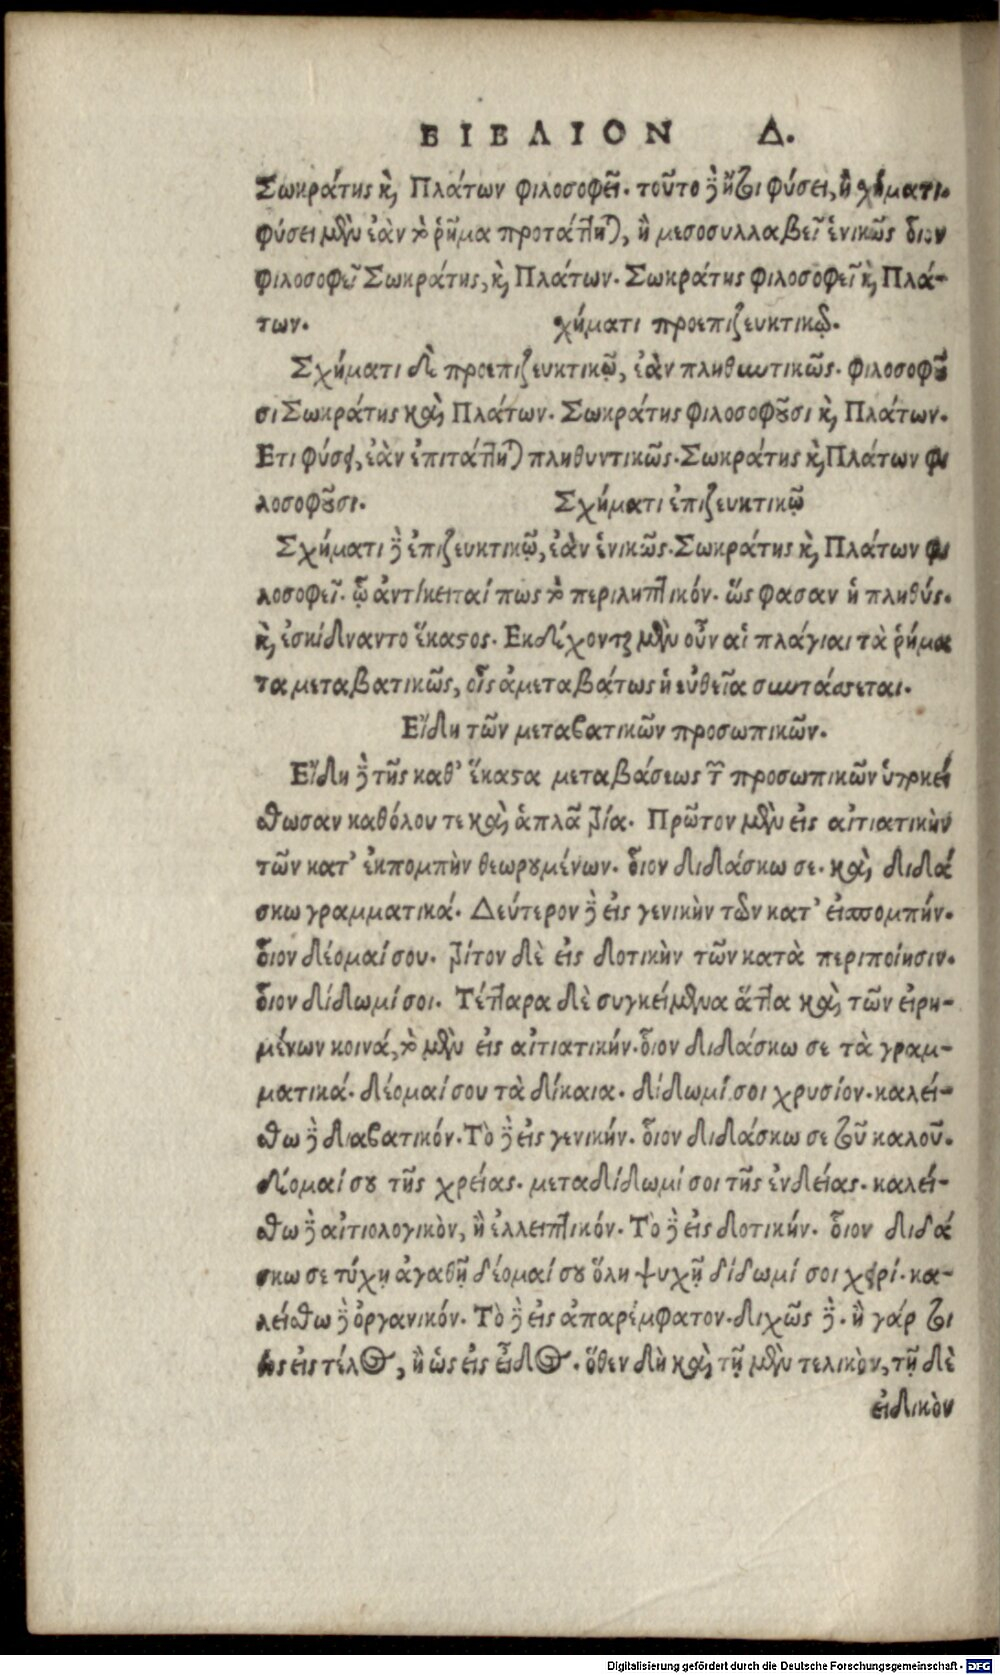 ΒΙΒΛΙΟΝ Δ.
Σωκράτης κ, Πλάτων φιλοσοφεῖ. τοῦτο δὲ ἤτοι φύσει, ἢ χήματι.
φύσει μὲν ἐὰν τὸ ῥῆμα προτάττηται, ἢ μεσοσυλλαβεῖ ἑνικῶς οἷον
φιλοσοφεῖ Σωκράτης, κ, Πλάτων. Σωκράτης φιλοσοφεῖ κ, Πλά-
των. χήματι προεπιζευκτικῷ.
Σχήματι δὲ προεπιζευκτικῷ, ἐὰν πληθυντικῶς. φιλοσοφοῦ
σι Σωκράτης καὶ Πλάτων. Σωκράτης φιλοσοφοῦσι κ, Πλάτων.
Ετι φύσει, ἐὰν ἐπιτάττηται πληθυντικῶς. Σωκράτης κ, Πλάτων φι
λοσοφοῦσι. Σχήματι ἐπιζευκτικῷ
Σχήματι δὲ ἐπιζευκτικῷ, ἐὰν ἑνικῶς. Σωκράτης κ, Πλάτων φι
λοσοφεῖ. ᾧ ἀντίκειταί πως τὸ περιληπτικόν. ὥς φασαν ἡ πληθύς.
κ, ἐσκίδναντο ἕκαστος. Εκδέχονται μὲν οὖν αἱ πλάγιαι τὰ ῥήμα
τα μεταβατικῶς, οἷς ἀμεταβάτως ἡ εὐθεῖα συντάσσεται.
Εἴδη τῶν μεταβατικῶν προσωπικῶν.
Εἴδη δὲ τῆς καθ' ἕκαστα μεταβάσεως τῶν προσωπικῶν ὑπρκεί
σθωσαν καθόλου τε καὶ ἁπλᾶ τρία. Πρῶτον μὲν εἰς αἰτιατικὴν
τῶν κατ' ἐκπομπὴν θεωρουμένων. οἷον διδάσκω σε. καὶ διδά
σκω γραμματικά. Δεύτερον δὲ εἰς γενικὴν τῶν κατ' εἰσπομπήν.
οἷον δέομαί σου. τρίτον δὲ εἰς δοτικὴν τῶν κατὰ περιποίησιν.
οἷον δίδωμί σοι. Τέτταρα δὲ συγκείμενα ἅττα καὶ τῶν εἰρη-
μένων κοινά, τὸ μὲν εἰς αἰτιατικήν. οἷον διδάσκω σε τὰ γραμ-
ματικά. δέομαί σου τὰ δίκαια. δίδωμί σοι χρυσίον. καλεί-
σθω δὲ διαβατικόν. Τὸ δὲ εἰς γενικήν. οἷον διδάσκω σε τοῦ καλοῦ.
δέομαί σου τῆς χρείας. μεταδίδωμί σοι τῆς ἐνδείας. καλεί-
σθω δὲ αἰτιολογικὸν, ἢ ἐλλειπτικόν. Τὸ δὲ εἰς δοτικήν. οἷον διδά
σκω σε τύχῃ ἀγαθῇ δέομαί σου ὅλῃ ψυχῇ δίδωμί σοι χειρί. κα-
λείσθω δὲ ὀργανικόν. Τὸ δὲ εἰς ἀπαρέμφατον. διχῶς δέ. ἢ γάρ τοι
ὡς εἰς τέλος, ἢ ὡς εἰς εἶδος. ὅθεν δὴ καὶ τῇ μὲν τελικὸν, τῇ δὲ
εἰδικὸν
Digitalisierung gefördert durch die Deutsche Forschungsgemeinschaft - DFG